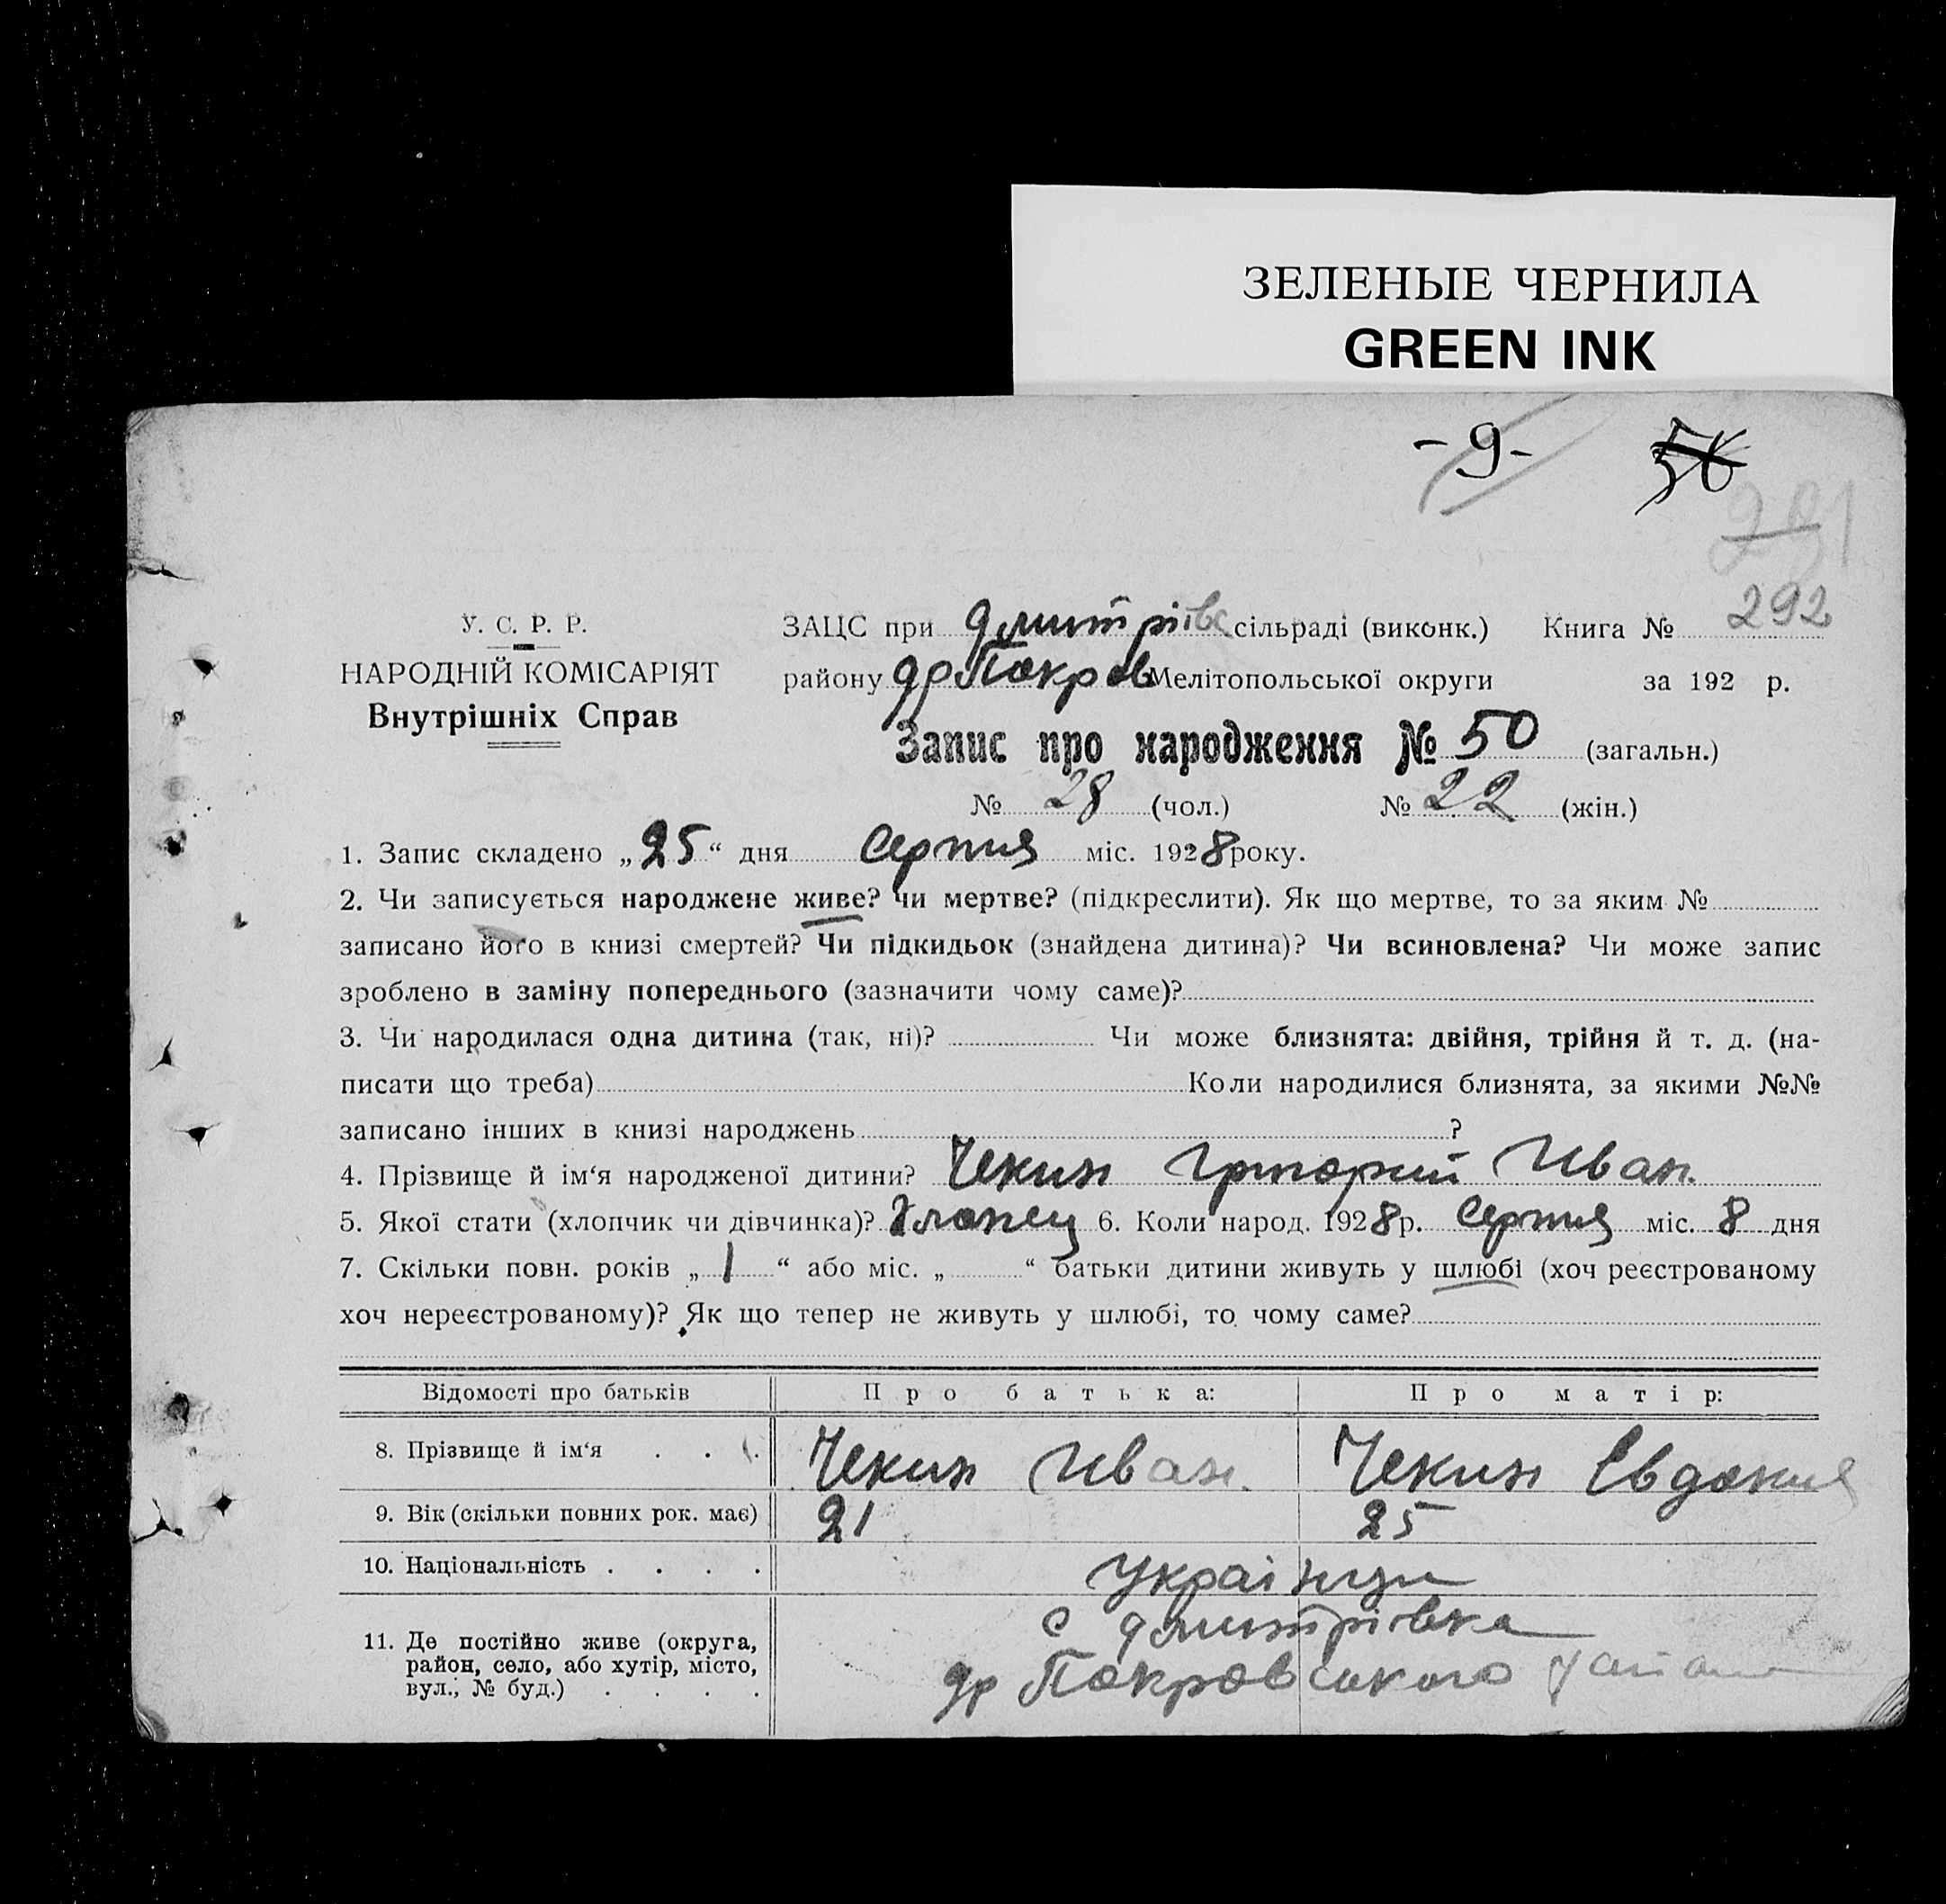 ЗЕЛЕНЫЕ ЧЕРНИЛА
GREEN INK
-9- 56
291
292
У. С. Р. Р.
НАРОДНІЙ КОМІСАРІЯТ
Внутрішніх Справ
ЗАЦС при Дмитрівс сільраді (виконк.) Книга №
району др Покров Мелітопольської округи за 192 р.
Запис про народження № 50 (загальн.)
№ 28 (чол.) № 22 (жін.)
1. Запис складено „25“ дня Серпня міс. 1928 року.
2. Чи записується народжене живе? чи мертве? (підкреслити). Як що мертве, то за яким №
записано його в книзі смертей? Чи підкидьок (знайдена дитина)? Чи всиновлена? Чи може запис
зроблено в заміну попереднього (зазначити чому саме)?
3. Чи народилася одна дитина (так, ні)? Чи може близнята: двійня, трійня й т. д. (на-
писати що треба) Коли народилися близнята, за якими №№
записано інших в книзі народжень ?
4. Прізвище й ім‘я народженої дитини? Чекин Григорий Иван.
5. Якої стати (хлопчик чи дівчинка)? Хлопец 6. Коли народ. 1928 р. Серпня міс. 8 дня
7. Скільки повн. років „1“ або міс. „ “ батьки дитини живуть у шлюбі (хоч реєстрованому
хоч нереєстрованому)? Як що тепер не живуть у шлюбі, то чому саме?
Відомості про батьків Про батька: Про матір:
8. Прізвище й ім‘я . . . Чекин Иван. Чекин Евдокия
9. Вік (скільки повних рок. має) 21 25
10. Національність . . . . Українци
11. Де постійно живе (округа, с Дмитрівка
район, село, або хутір, місто, др Покровського району
вул., № буд.) . . . .